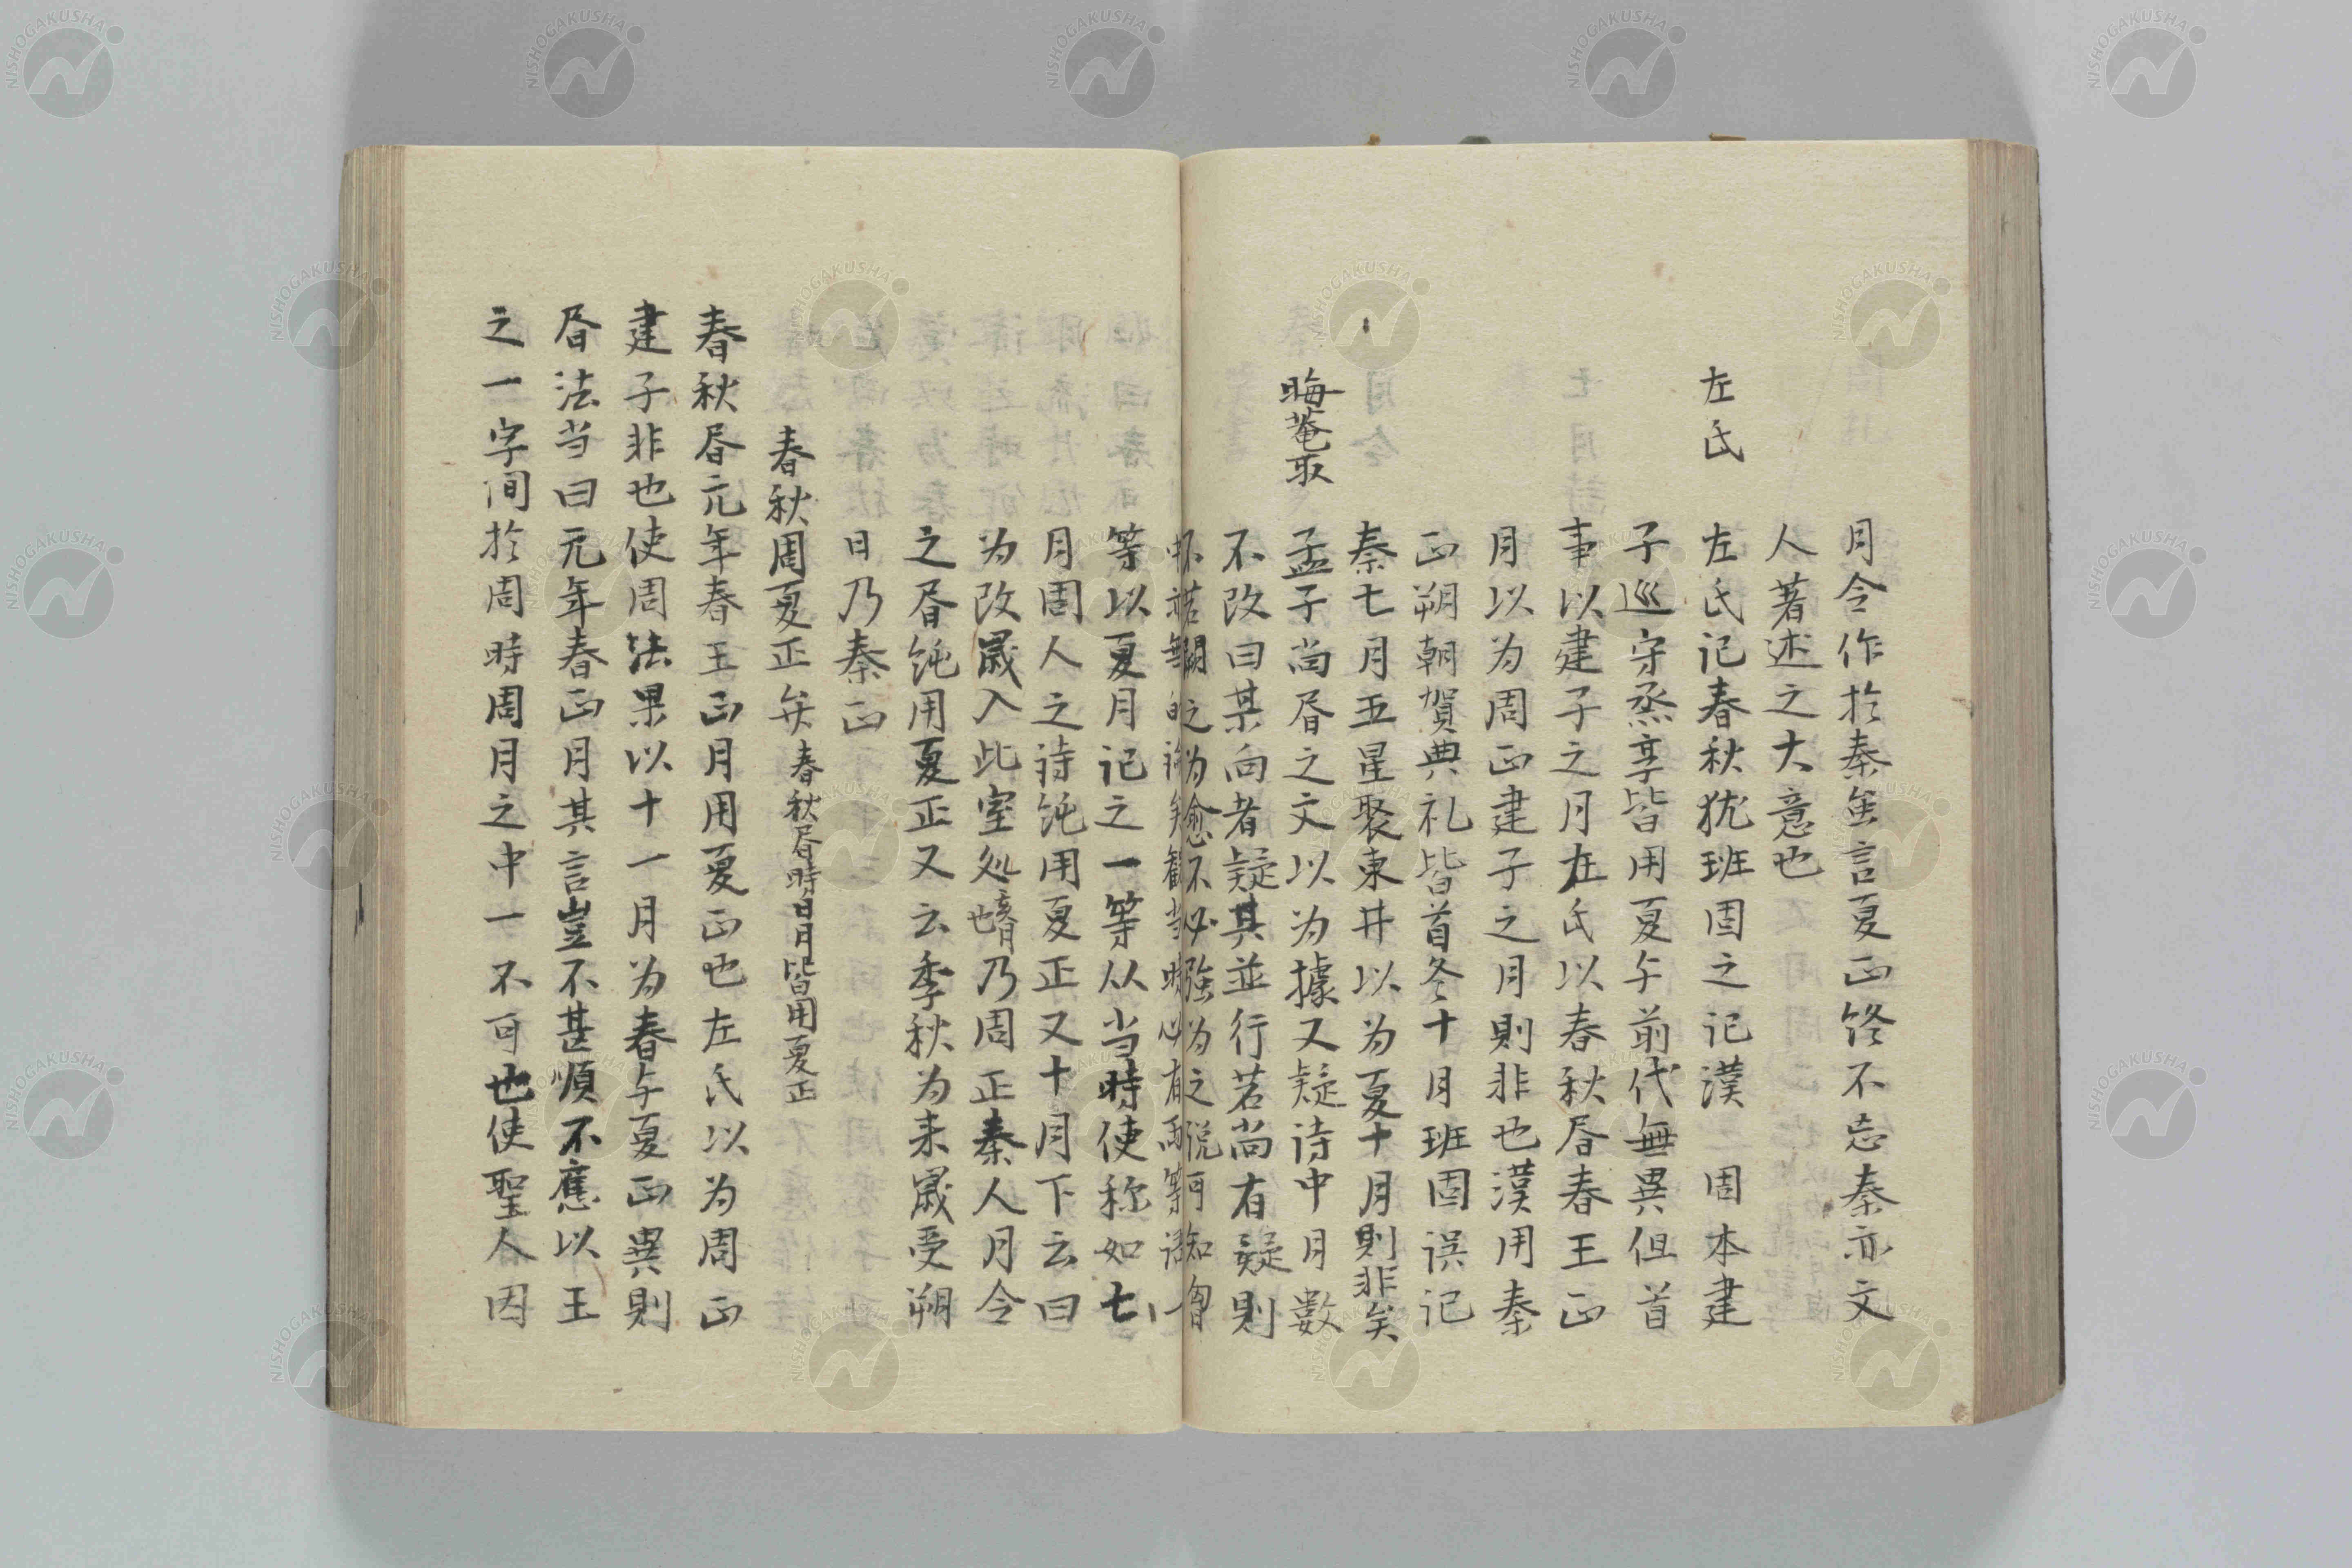 月令作於秦虽言夏正終不忘秦亦文
人著述之大意也
左氏
左氏记春秋犹班固之记漢 固本建
子巡守烝享皆用夏与前代無異但首
事以建子之月左氏以春秋昏春王正
月以为周正建子之月則非也漢用秦
正朔朝賀典礼皆首冬十月班固误记
秦七月五星聚東井以为夏十月則非矣
晦菴取
孟子尚昏之文以为據又疑诗中月數
不改曰某向者疑其並行若尚有疑則
不若闕之为愈不必强为之说可知會
等以夏月记之一等从当時使称如七
月周人之诗純用夏正又十月下云曰
为改歲入此室処乃周正秦人月令
之昏純用夏正又云季秋为来歲受朔
日乃秦正
春秋周夏正弁 春秋昏時日月皆用夏正
春秋昏元年春王正月用夏正也左氏以为周正
建子非也使周法果以十一月为春与夏正異則
昏法当曰元年春正月其言豈不甚順不應以王
之一字间於周時周月之中一不可也使聖人因
NISHOGAKUSHA